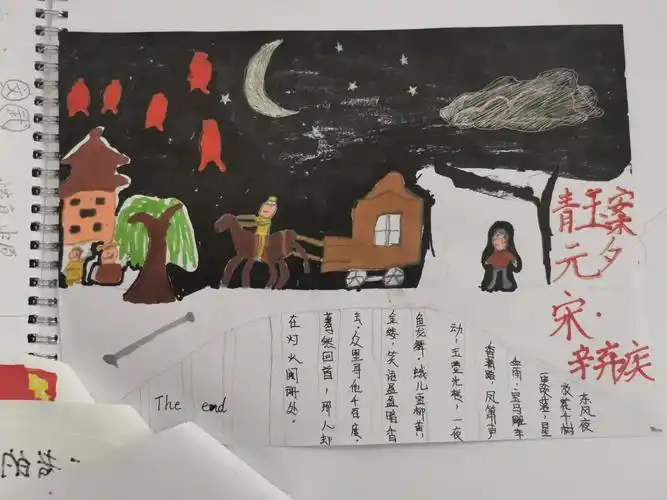 青玉案
元夕
宋·
辛弃疾
东风夜
放花千树
更吹落,星
如雨,宝马雕车
香满路,凤箫声
动,玉壶光转,一夜
鱼龙舞。蛾儿雪柳黄
金缕,笑语盈盈暗香
去。众里寻他千百度,
蓦然回首,那人却
在灯火阑珊处。
The end